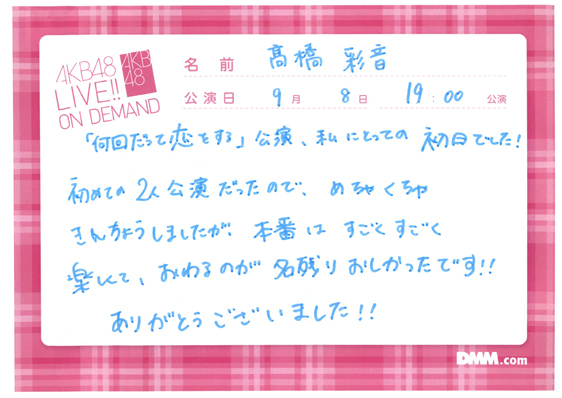 AKB48
LIVE!!
ON DEMAND
AKB
48
名前 髙橋 彩音
公演日 9月 8日 19:00 公演
「何回だって恋をする」公演、私にとっての 初日でした!
初めての2人公演だったので、めちゃくちゃ
きんちょうしましたが、本番は すごくすごく
楽しくて、おわるのが 名残りおしかったです!!
ありがとうございました!!
DMM.com